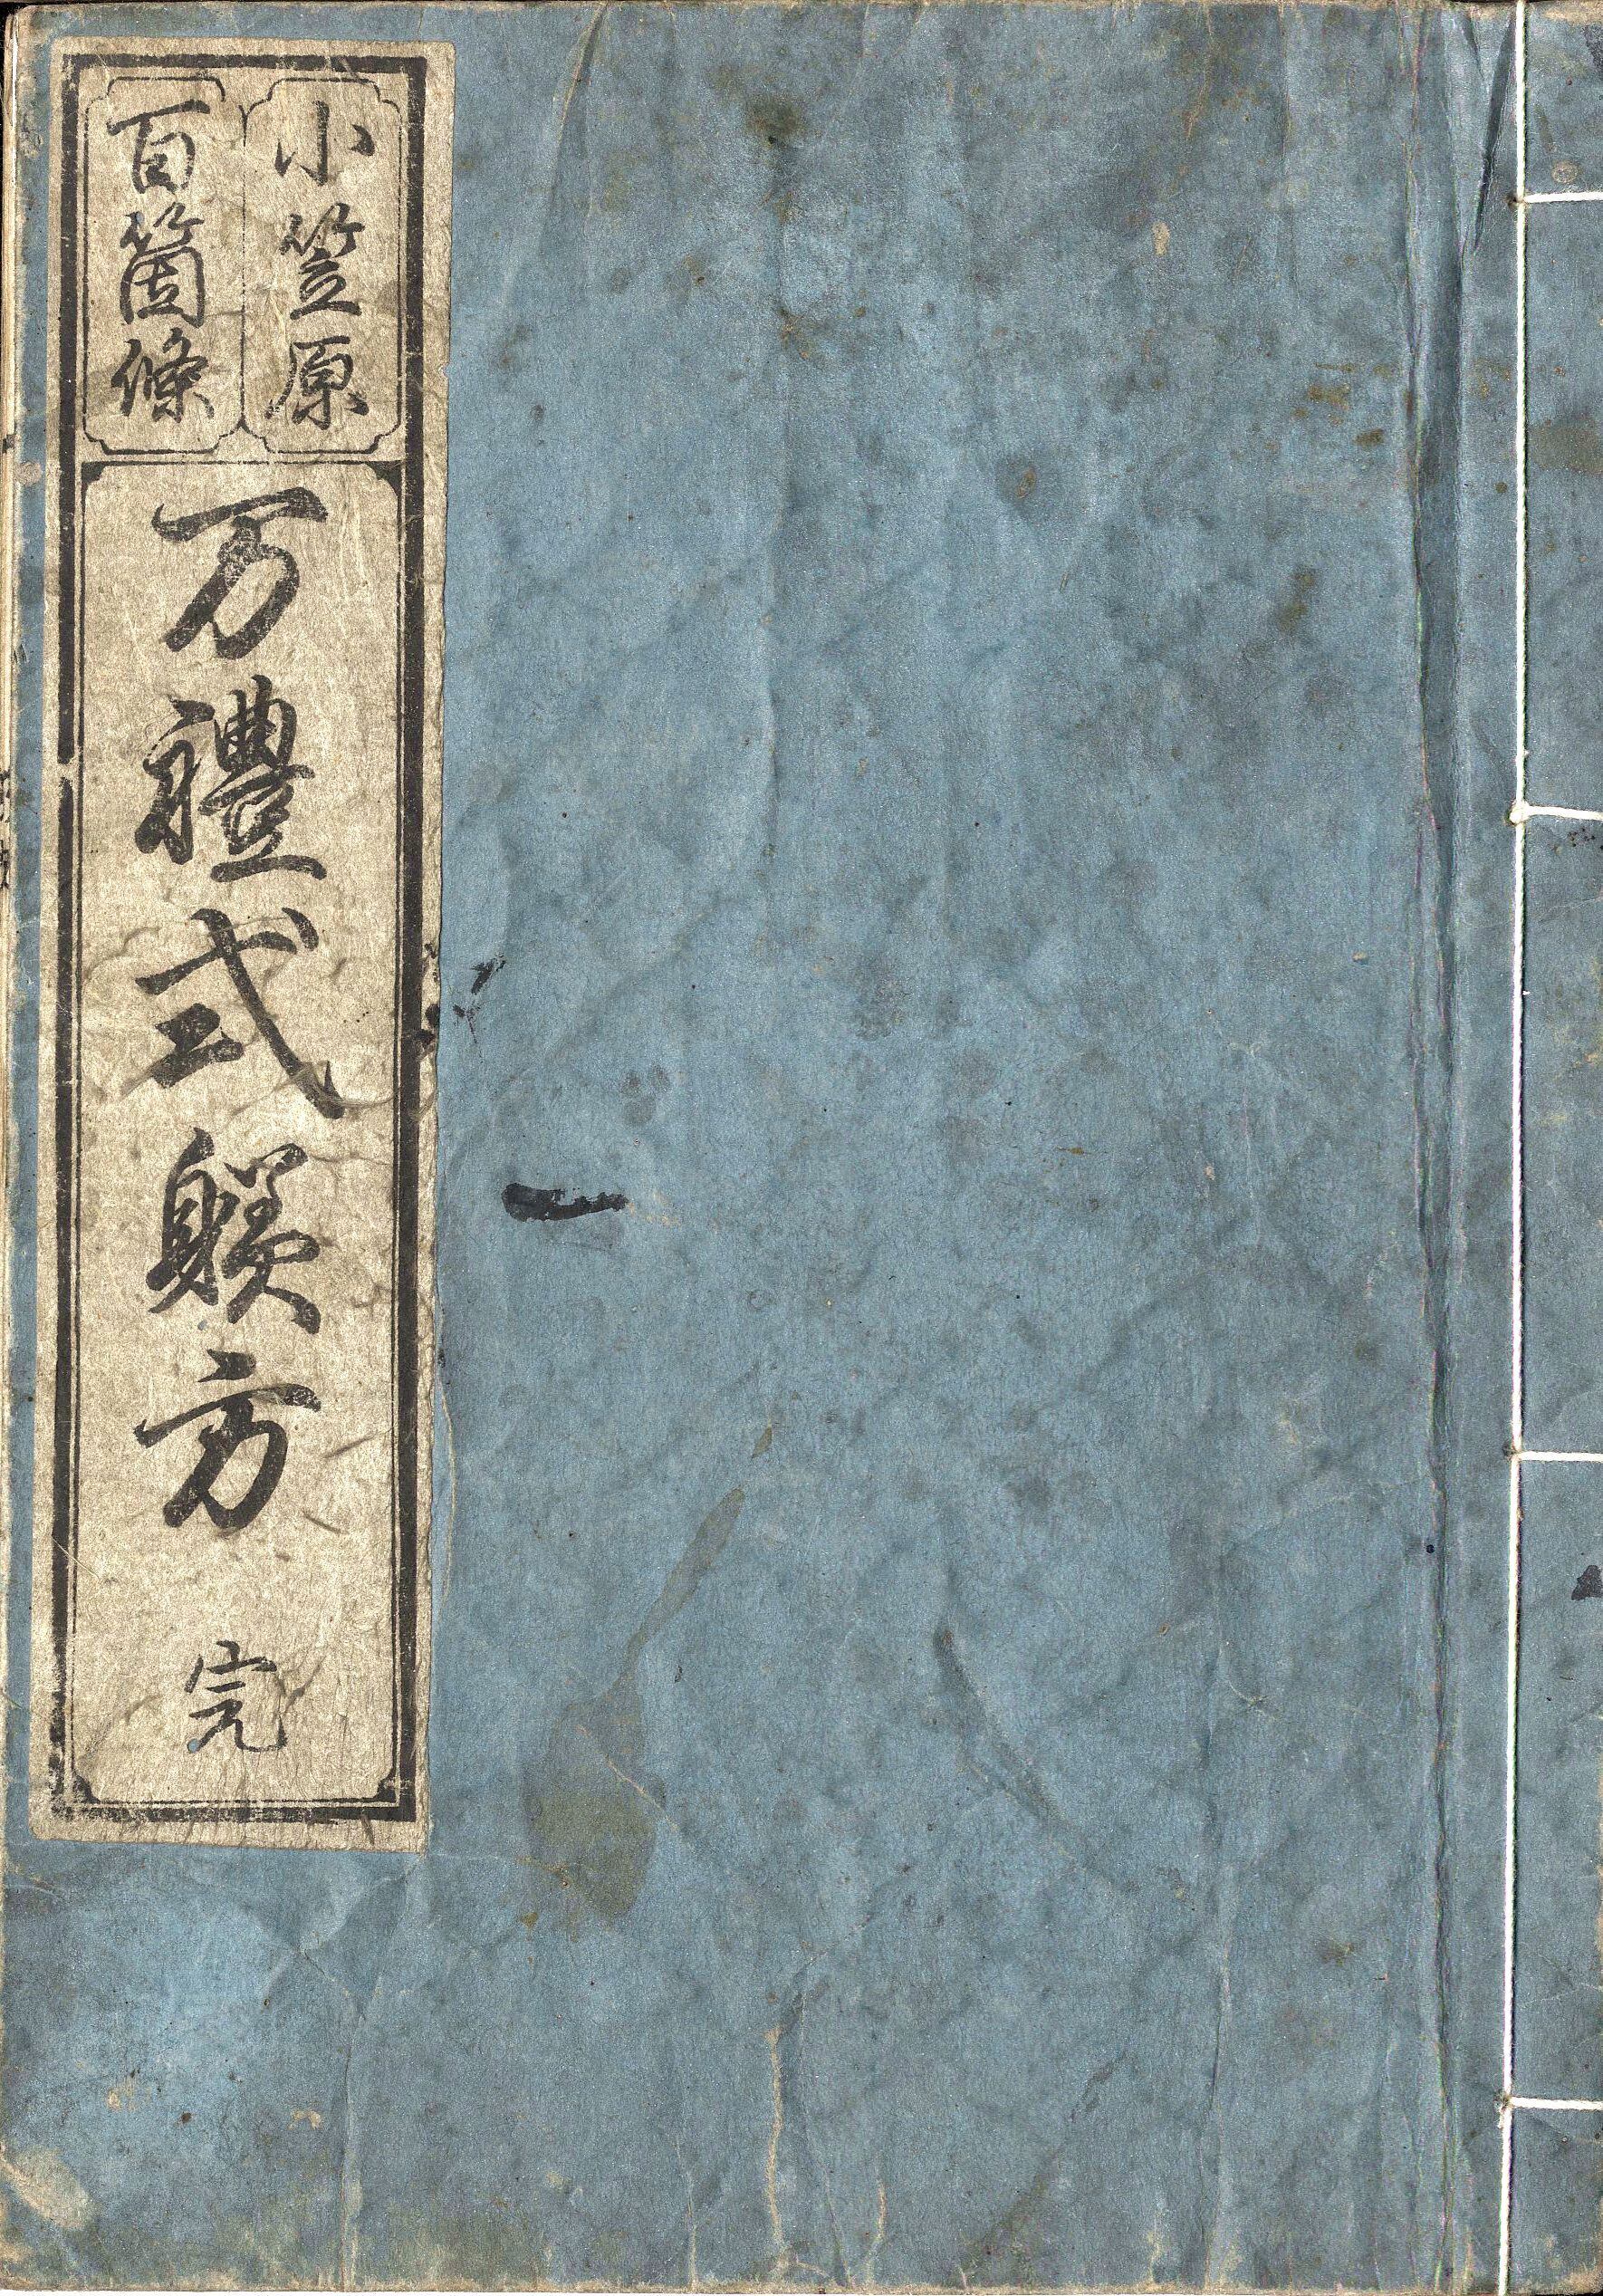 小笠原
百箇條
万禮式躾方 完